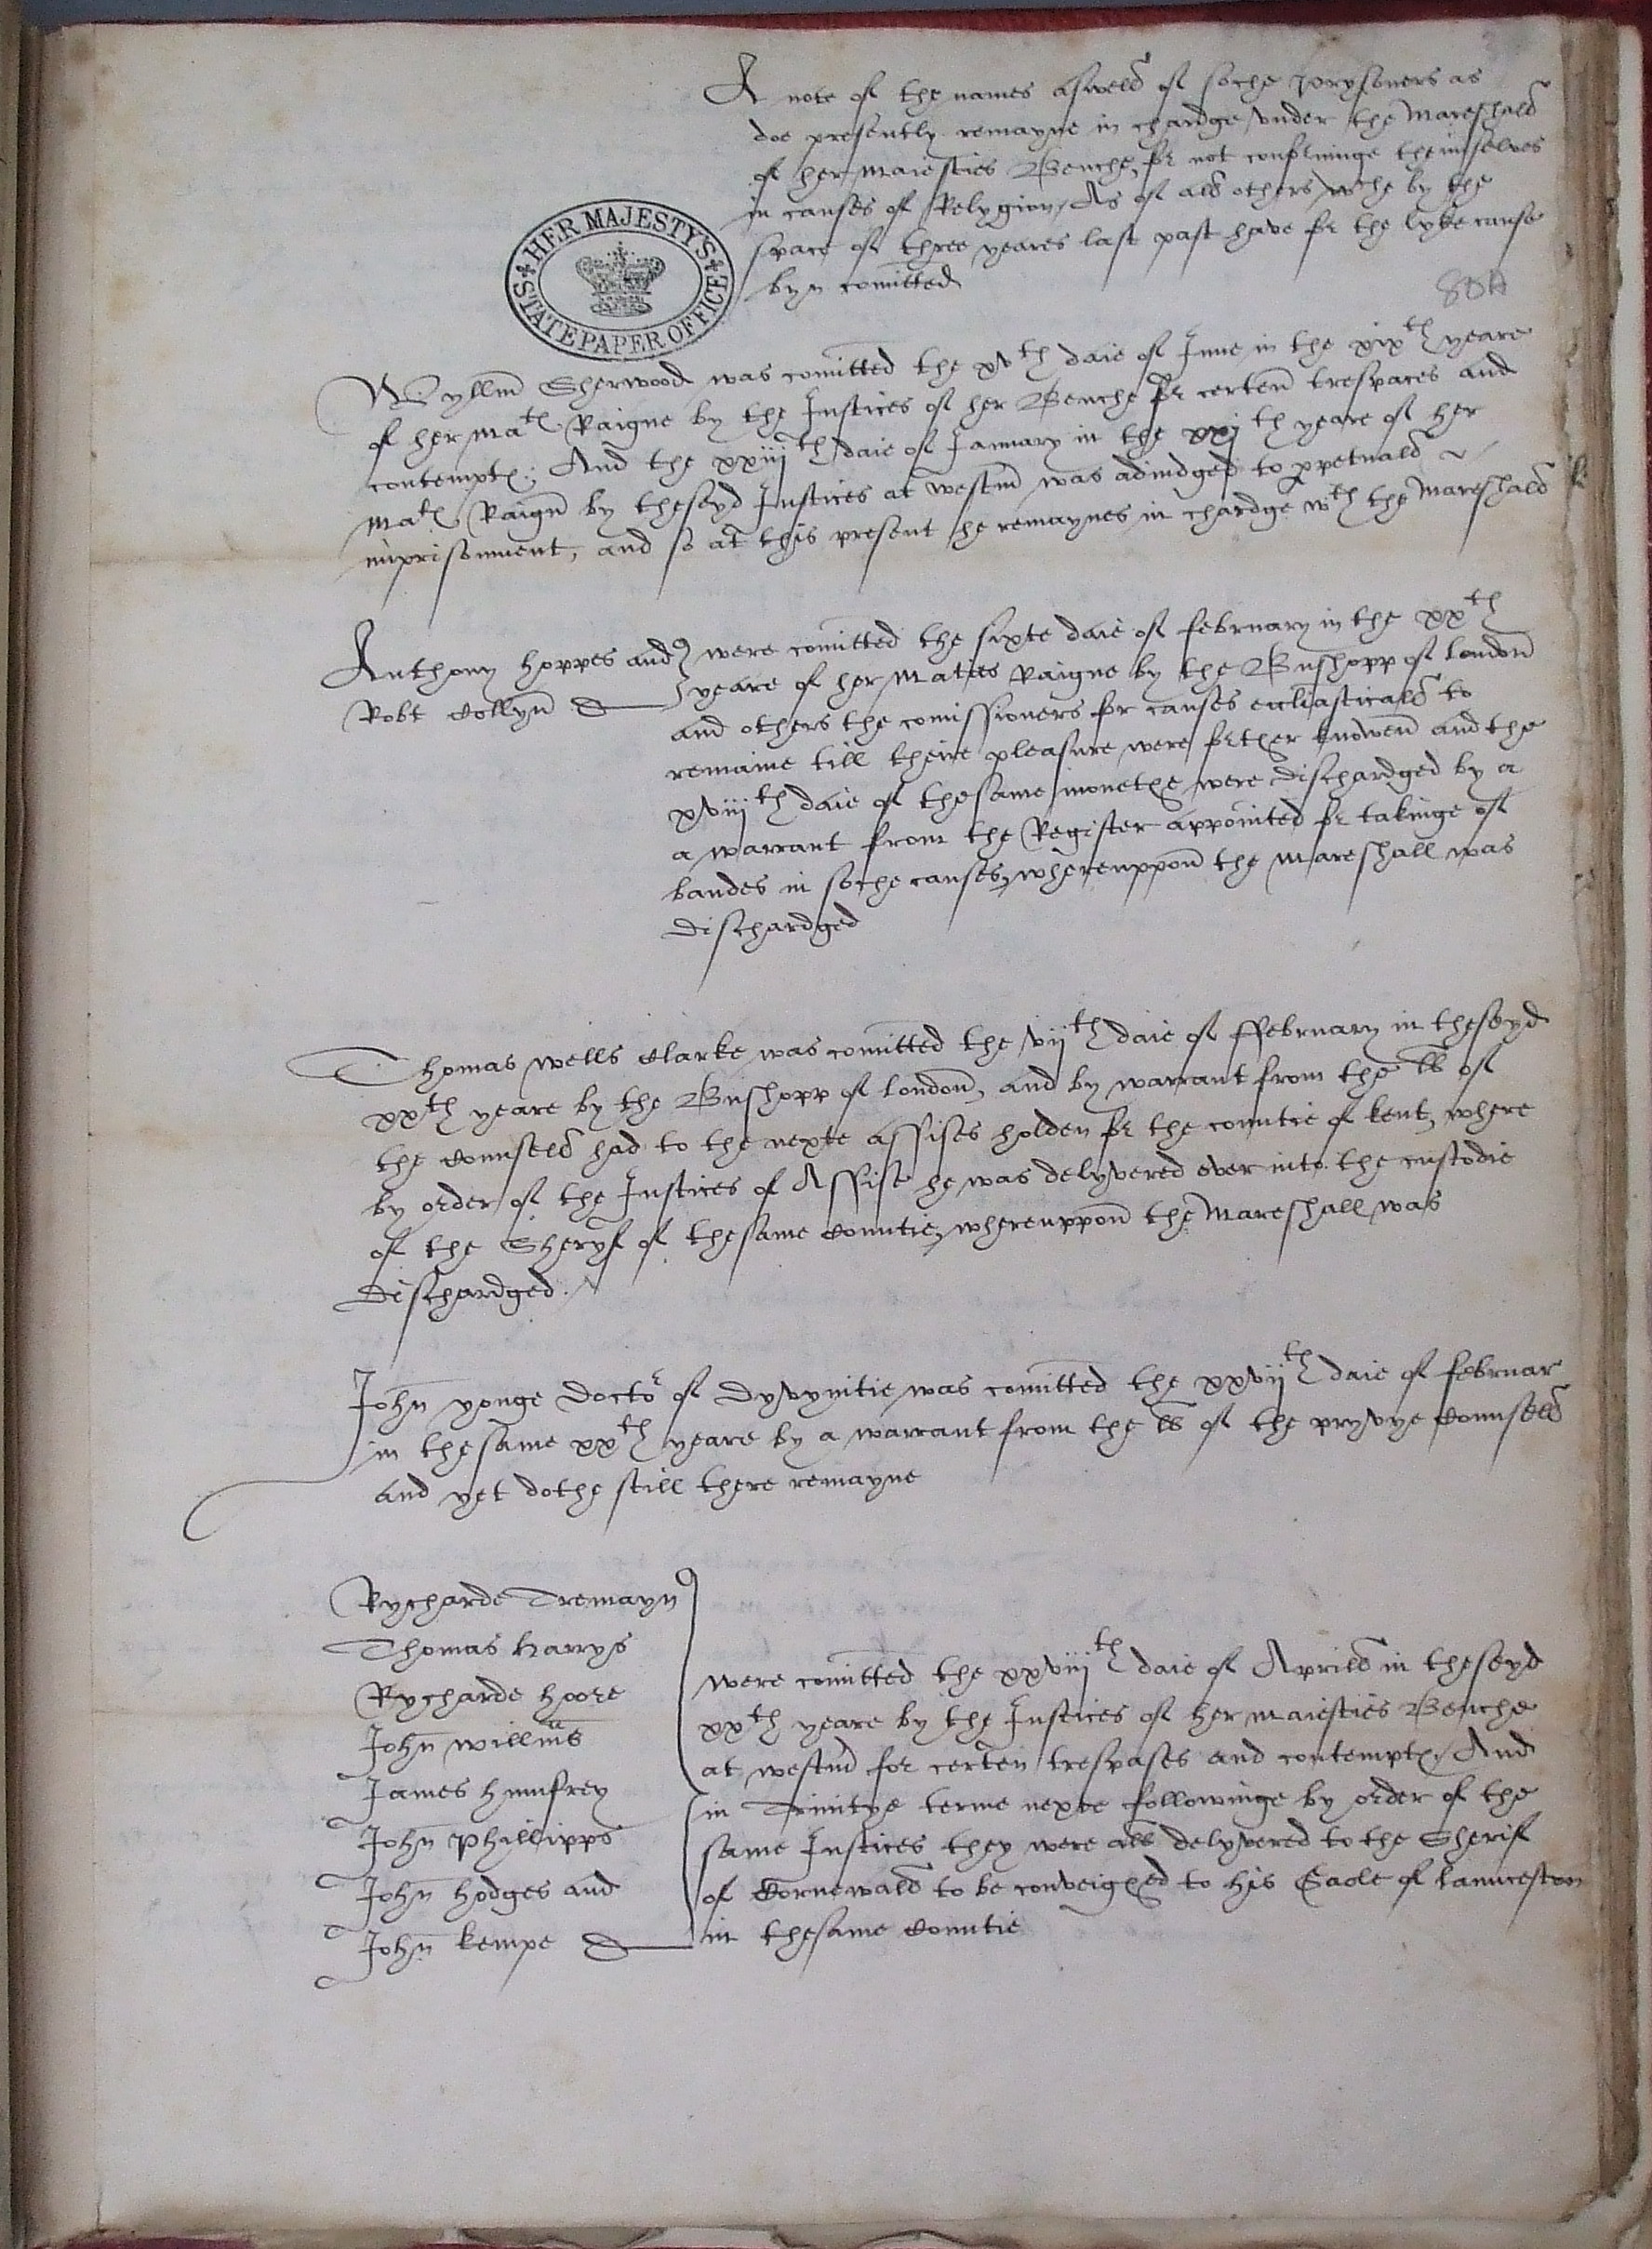 A note of the names aswell of soche prysoners as
doe presently remayne in chardge under the Mareshall
of her Maiesties Benche, for not conforminge themselves
in causes of Relygion / As of all others wche by the
space of three yeares last past have for the lyke cause
byn comitted
HER MAJESTY'S
STATE PAPER OFFICE
Wyllm Sherwood was comitted the xvth daie of June in the xixth yeare
of her Mats Raigne by the Justices of her Benche for certen trespaces and
contempts; And the xxiiith daie of January in the xxith yeare of her
Mats Raign by theseyd Justices at westm was adiudged to ppetuall
imprisonment, and so at this present he remaynes in chardge wth the Mareshall
Anthony Hoppes and were comitted the sixte daie of february in the xxth
Robt Collyn yeare of her Maties Raigne by the Busshopp of London
and others the comissioners for causes eccliasticall to
remaine till theire pleasure were further knowen and the
xviiith daie of thesame monethe were dischardged by a
a warrant from the Register appointed for takinge of
bandes in soche causes, whereuppon the Mareshall was
dischardged
Thomas wells Clarke was comitted the viith daie of ffebruary in theseyd
xxth yeare by the Busshopp of London, and by warrant from the LL of
the Counsell had to the nexte assises holden for the countie of kent, where
by order of the Justices of Assise he was delyvered over into the custodie
of the Sheryf of thesame Countie, whereuppon the Mareshall was
dischardged.
John yonge Doctor of Dyvynitie was comitted the xxviith daie of februar
in thesame xxth yeare by a warrant from the LL of the pryvye Counsell
and yet dothe still there remayne
Rycharde Tremayn
Thomas Harrys
Rycharde Hoore
John willms
James Humfrey
John Phillipps
John Hodges and
John kempe
were comitted the xxviiith daie of Aprill in theseyd
xxth yeare by the Justices of her Maiesties Benche
at westm for certen trespases and contempts / And
in Trinitye terme nexte followinge by order of the
same Justices they were all delyvered to the Sherif
of Cornewall to be conveighed to his Gaole of Launceston
in thesame Countie